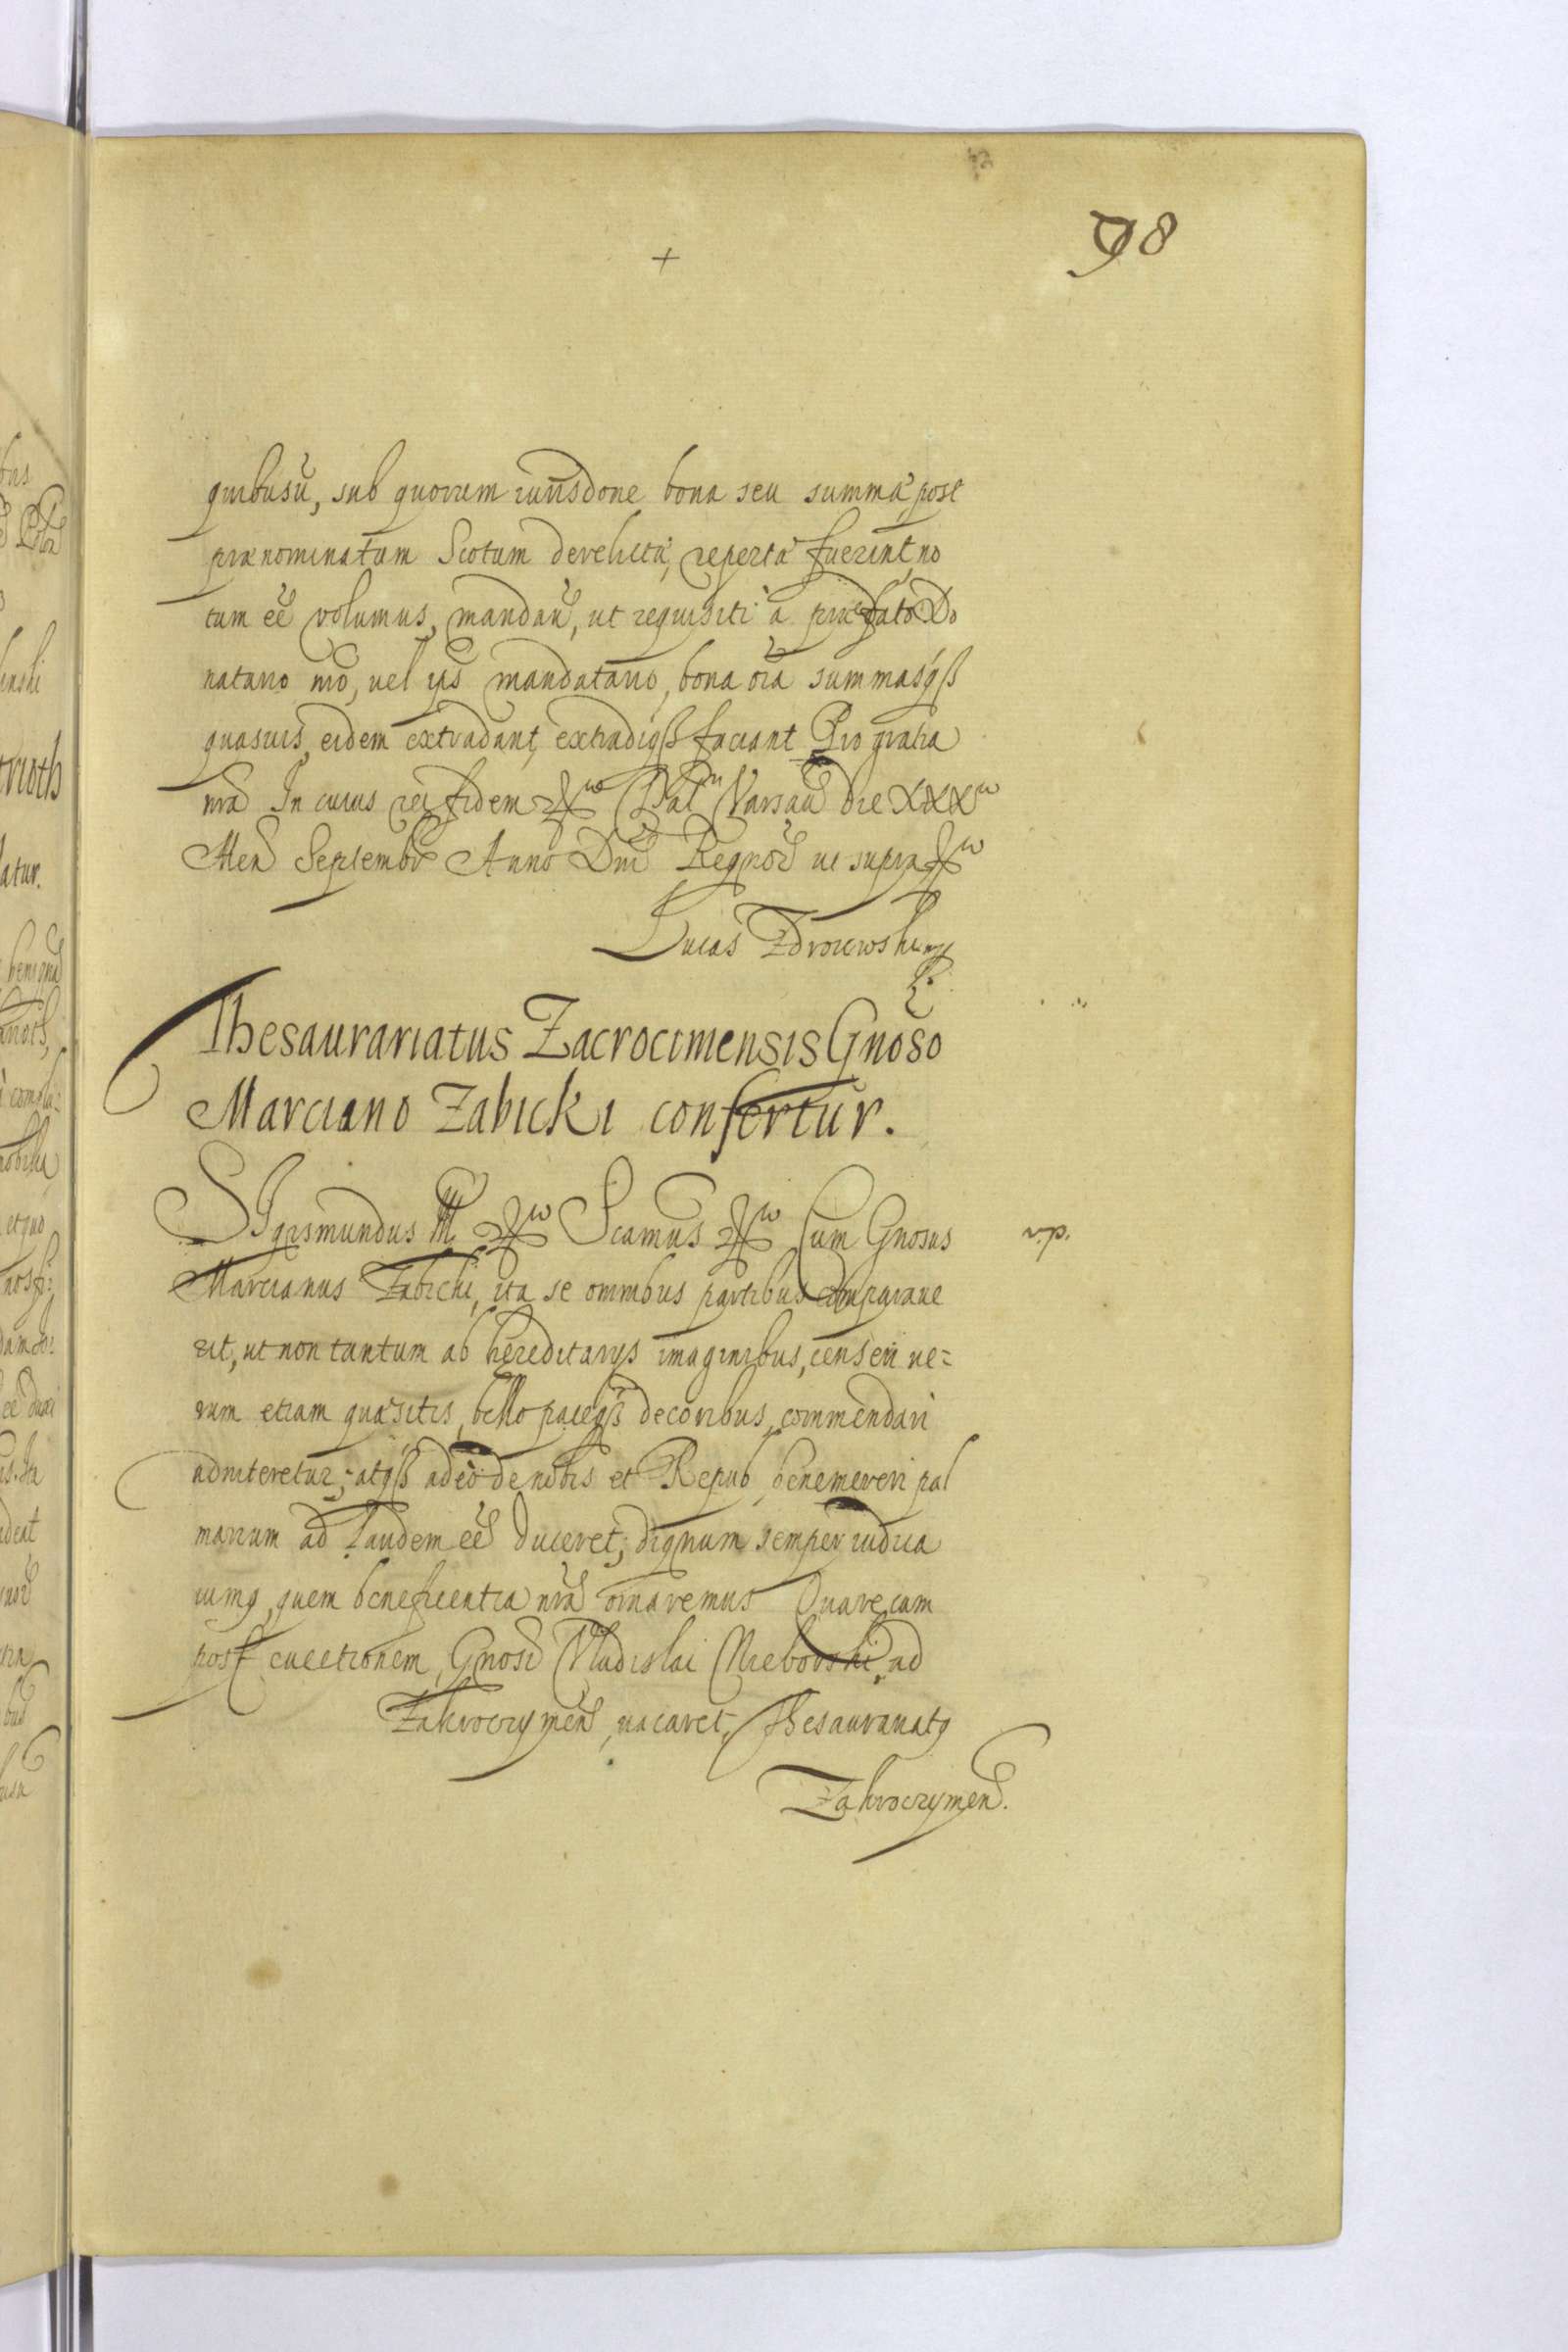 98
+
quibusũ, sub quorum iurisdone bona seu summa, post
prænominatum Scotum derelicta, reperta fuerint, no
tum eẽ volumus, mandaũ, ut requisiti à præfato Do
natario nrõ, vel ejs mandatario, bona oĩa summasqß
quasuis, eidem extradant, extradiqß faciant Pro gratia
nrã In cuius rei fidem Dat Varsaũ die XXX
Men Septembr Anno Dni Regnor ut supra
Lucas Zdroiewski
Thesaurariatus Zacrocimensis Gnoso
Marciano Zabicki confertur.
SIgismundus III Scamus Cum Gnosus
Marcianus Zabicki, ita se omnibus partibus comparaue
rit, ut non tantum ab hereditarijs imaginibus, censeri ue=
rum etiam quæsitis, bello paceqß decoribus, commendari
adniteretur; atqß adeò de nobis et Repub, benemereri pal
marium ad laudem eẽ duceret; dignum semper iudica
uimq, quem beneficentia nrã ornaremus Quare, cum
post euectionem, Gnosi Vladislai ad
Zakroczymen, uacaret, Thesaurariatq
Zakroczymen.